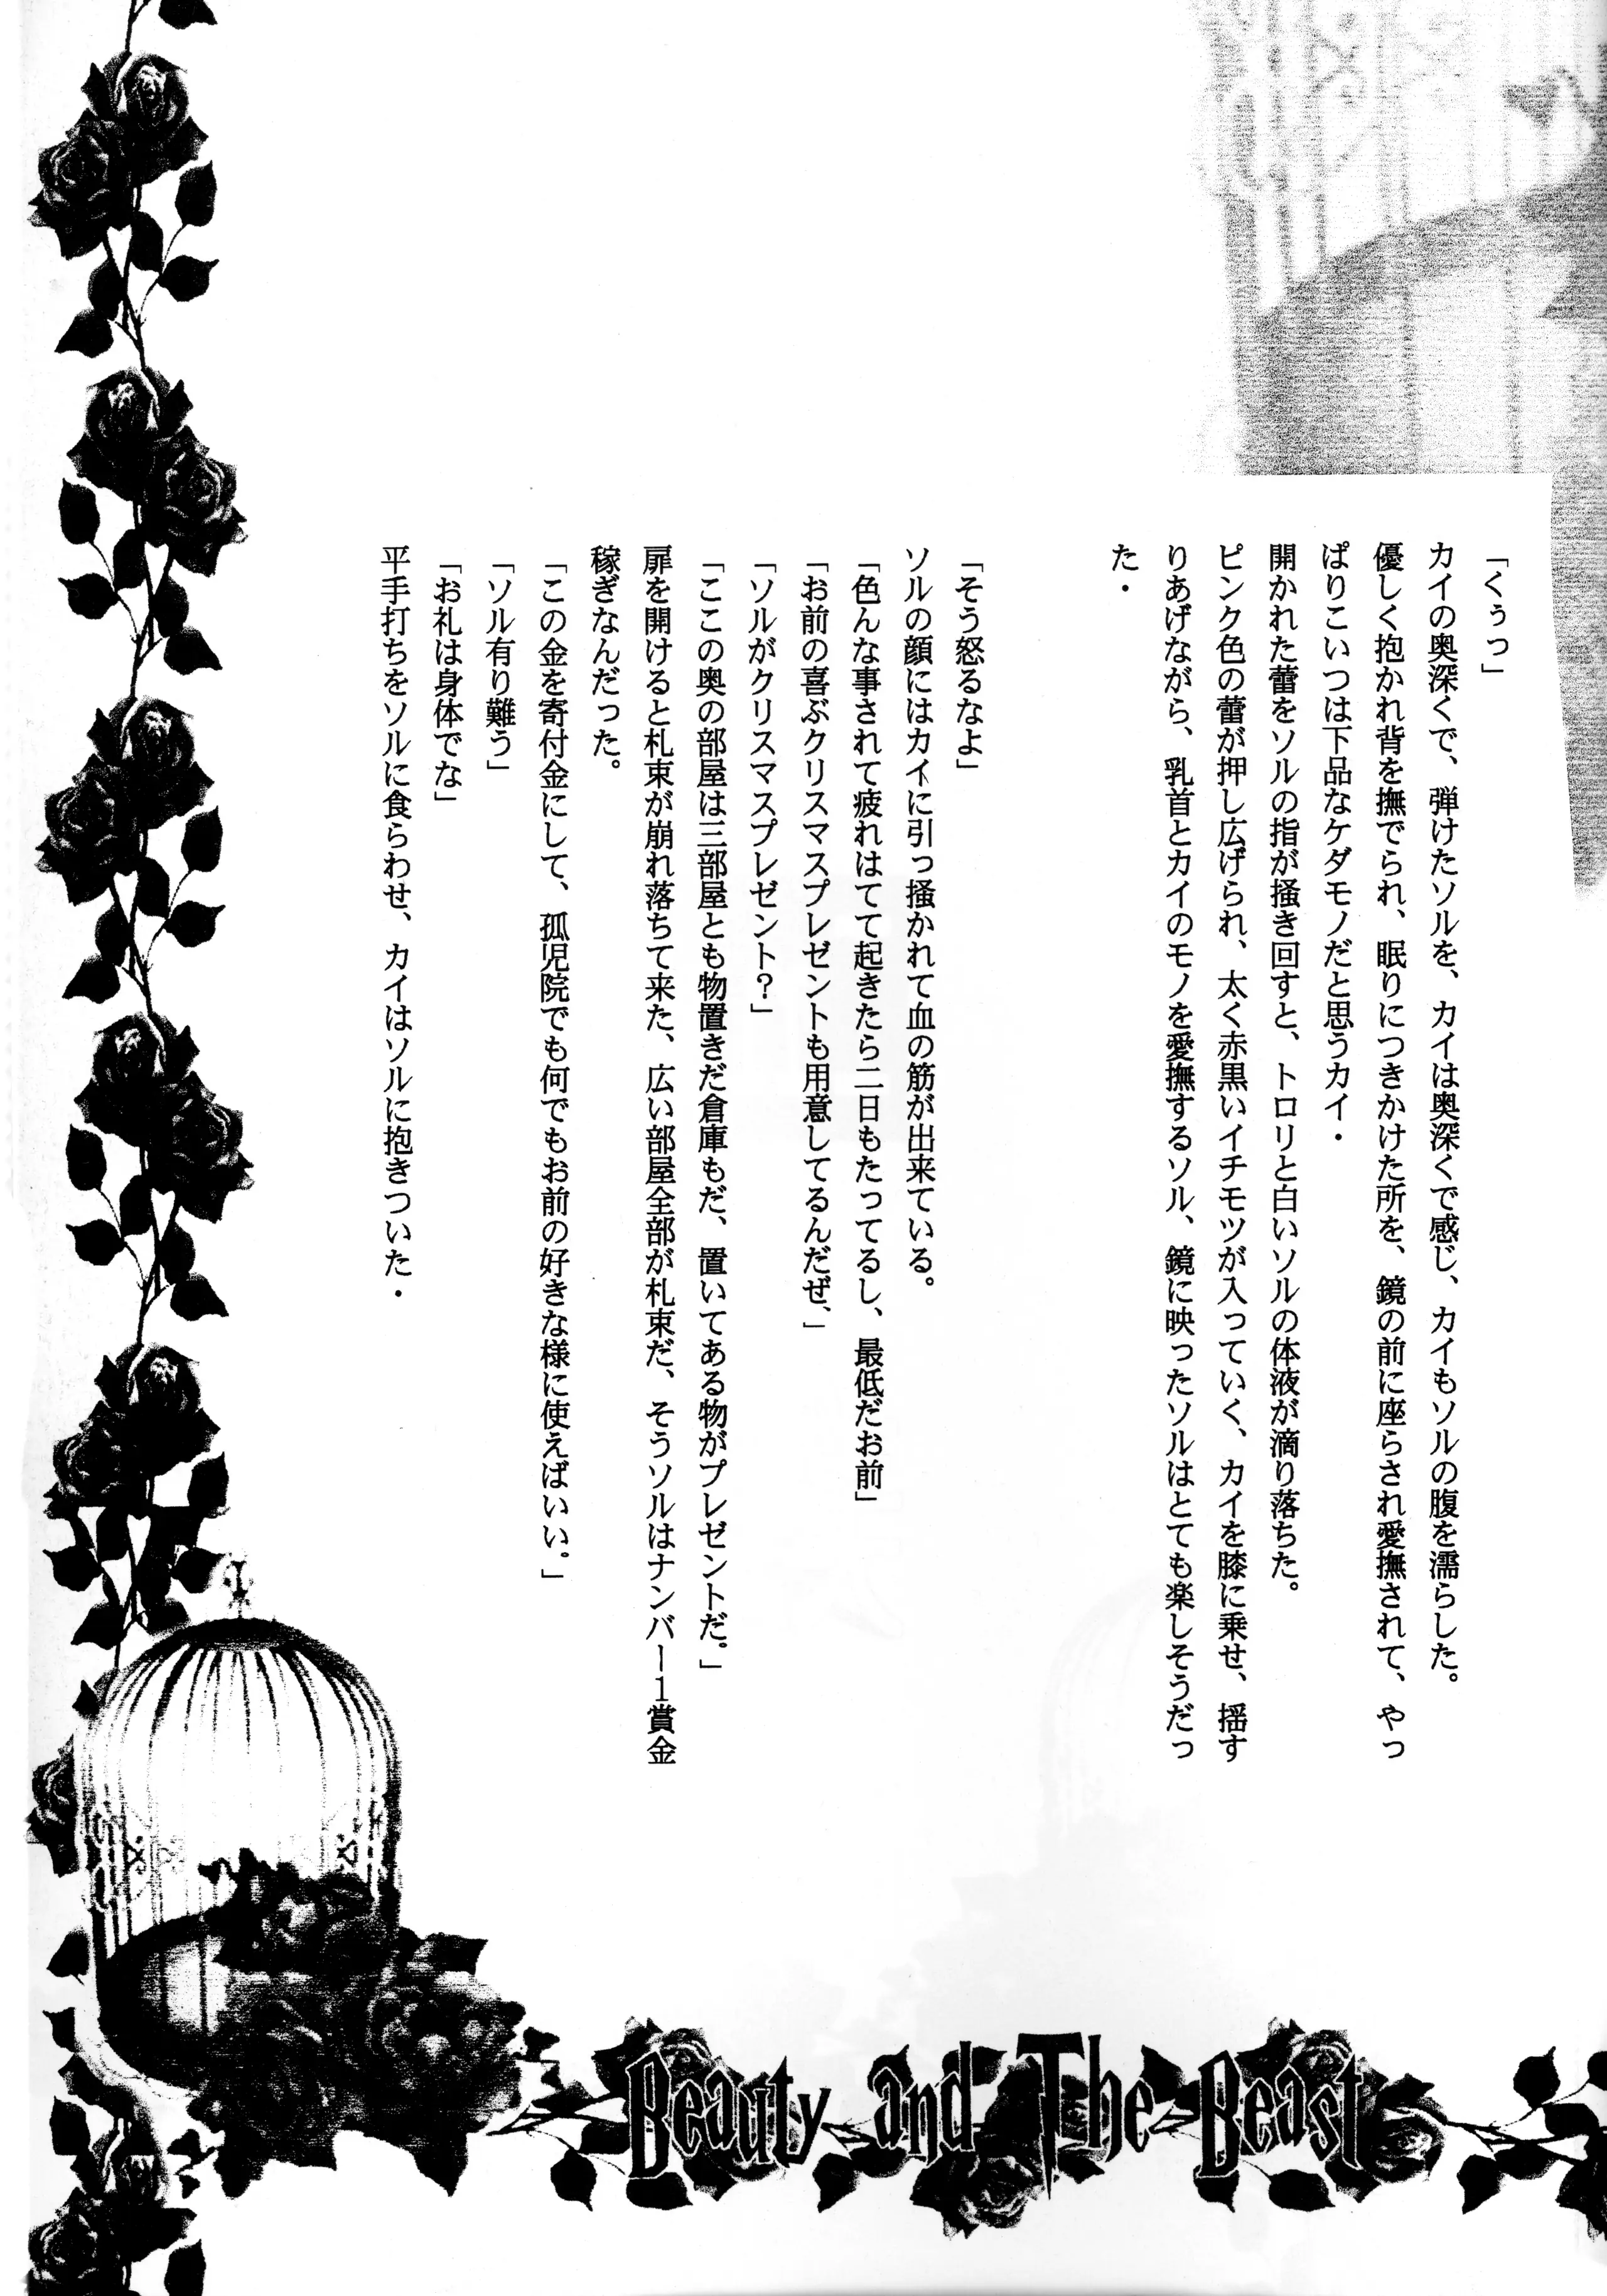 「くぅっ」
カイの奥深くで、弾けたソルを、カイは奥深くで感じ、カイもソルの腹を濡らした。
優しく抱かれ背を撫でられ、眠りにつきかけた所を、鏡の前に座らされ愛撫されて、やっ
ぱりこいつは下品なケダモノだと思うカイ・
開かれた蕾をソルの指が掻き回すと、トロリと白いソルの体液が滴り落ちた。
ピンク色の蕾が押し広げられ、太く赤黒いイチモツが入っていく、カイを膝に乗せ、揺す
りあげながら、乳首とカイのモノを愛撫するソル、鏡に映ったソルはとても楽しそうだっ
た・
「そう怒るなよ」
ソルの顔にはカイに引っ掻かれて血の筋が出来ている。
「色んな事されて疲れはてて起きたら二日もたってるし、最低だお前」
「お前の喜ぶクリスマスプレゼントも用意してるんだぜ、」
「ソルがクリスマスプレゼント？」
「ここの奥の部屋は三部屋とも物置きだ倉庫もだ、置いてある物がプレゼントだ。」
扉を開けると札束が崩れ落ちて来た、広い部屋全部が札束だ、そうソルはナンバー１賞金
稼ぎなんだった。
「この金を寄付金にして、孤児院でも何でもお前の好きな様に使えばいい。」
「ソル有り難う」
「お礼は身体でな」
平手打ちをソルに食らわせ、カイはソルに抱きついた・
Beauty and The Beast